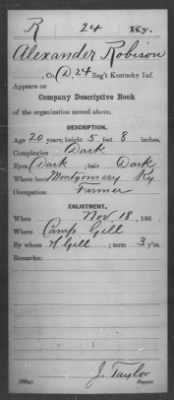 R 24 Ky.
Alexander Robison
, Co. D, 24 Reg't Kentucky Inf.
Appears on
Company Descriptive Book
of the organization named above.
DESCRIPTION.
Age 20 years; height 5 feet 8 inches.
Complexion Dark
Eyes Dark; hair Dark
Where born Montgomery Ky
Occupation Farmer
ENLISTMENT.
When Nov. 18, 186
Where Camp Gill
By whom Gill; term 3 y'rs.
Remarks:
J. Taylor
Copyist.